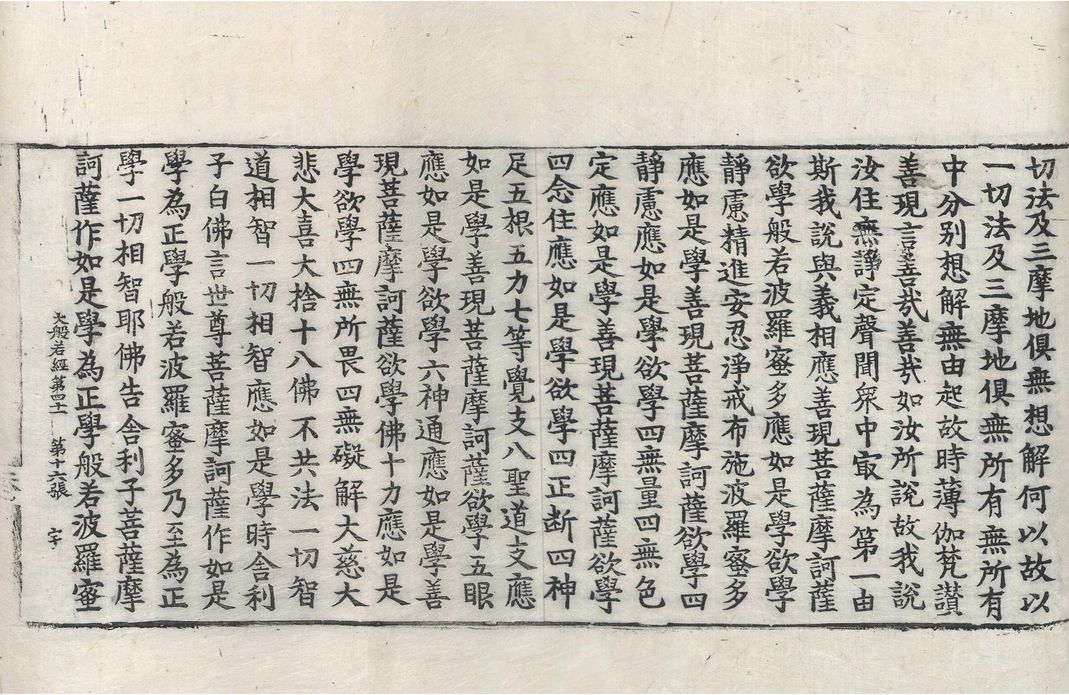 切法及三摩地俱無想解何以故以
一切法及三摩地俱無所有無所有
中分別想解無由起故時薄伽梵讃
善現言善㢤善㢤如汝所說故我說
汝住無諍定聲聞衆中㝡為第一由
斯我說與義相應善現菩薩摩訶薩
欲學般若波羅蜜多應如是學欲學
靜慮精進安忍淨戒布施波羅蜜多
應如是學善現菩薩摩訶薩欲學四
靜慮應如是學欲學四無量四無色
定應如是學善現菩薩摩訶薩欲學
四念住應如是學欲學四正断四神
足五根五力七等覺支八聖道支應
如是學善現菩薩摩訶薩欲學五眼
應如是學欲學六神通應如是學善
現菩薩摩訶薩欲學佛十力應如是
學欲學四無所畏四無礙解大慈大
悲大喜大捨十八佛不共法一切智
道相智一切相智應如是學時舍利
子白佛言世尊菩薩摩訶薩作如是
學為正學般若波羅蜜多乃至為正
學一切相智耶佛告舍利子菩薩摩
訶薩作如是學為正學般若波羅蜜
大般若經第四十一 第十六張 宇